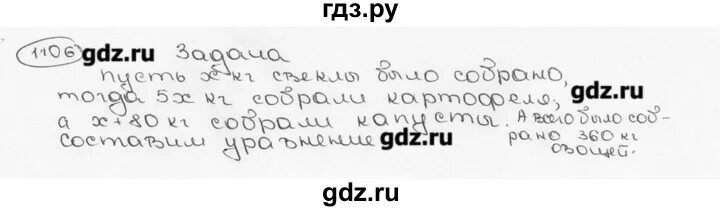 гдз.ру
1106 gdz.ru Задача
пусть x кг свеклы было собрано,
тогда 5x кг собрали картофеля, gdz.ru
а x+80 кг собрали капусты. А всего было соб-
составим уравнение gdz.ru рано 360 кг
овощей.
gdz.ru